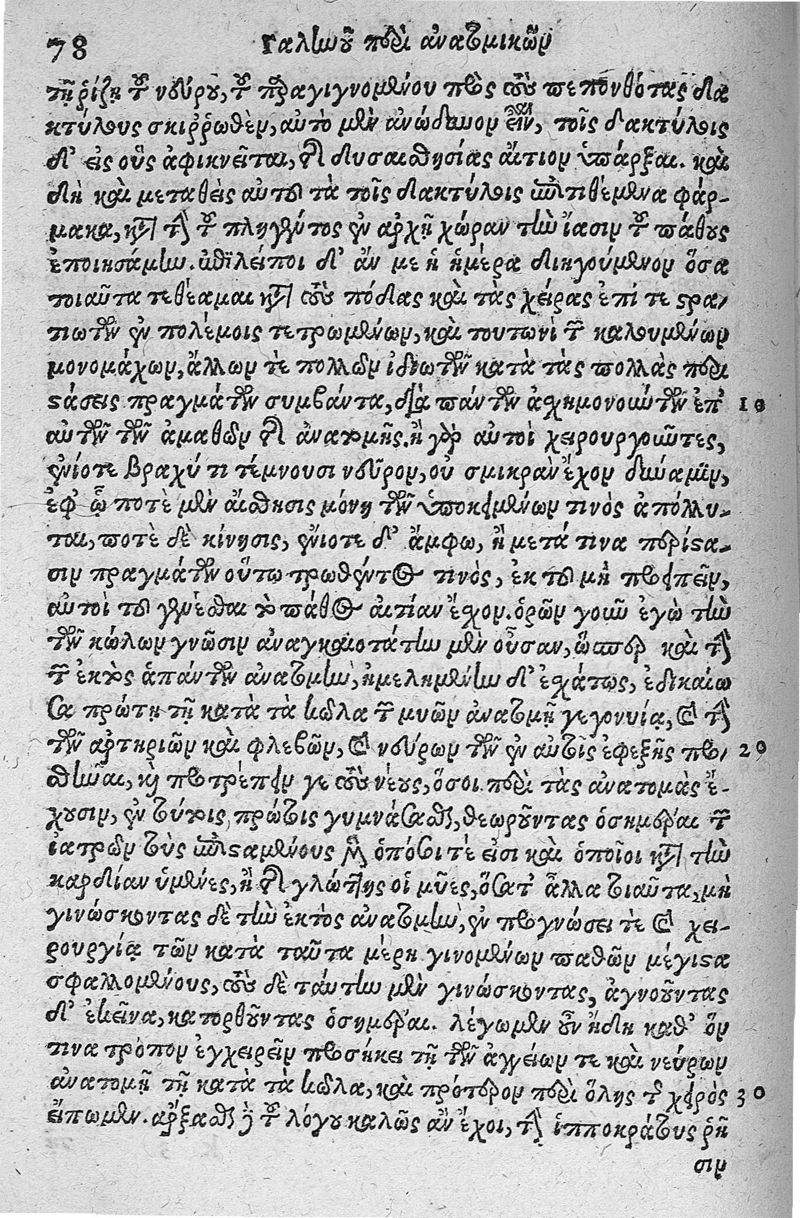 78 Γαληνοῦ περὶ ἀνατομικῶν
τῇ ῥίζῃ τοῦ νεύρου, τοῦ παραγιγνομένου πως τοὺς πεπονθότας δα
κτύλους σκιῤῥωθὲν, αὐτὸ μὲν ἀνώδυνον εἶναι, τοῖς δακτύλοις
δ' εἰς οὓς ἀφικνεῖται, τῆς δυσαισθησίας αἴτιον ὑπάρξαι. καὶ
δὴ καὶ μεταθεὶς αὐτοῦ τὰ τοῖς δακτύλοις ἐπιτιθέμενα φάρ-
μακα, κατὰ τὴν τοῦ πληγέντος ἐν ἀρχῇ χώραν τὴν ἴασιν τοῦ πάθους
ἐποιησάμην. ἐπιλείποι δ' ἄν με ἡ ἡμέρα διηγούμενον ὅσα
τοιαῦτα τεθέαμαι κατὰ τοὺς πόδας καὶ τὰς χεῖρας ἐπί τε στρα-
τιωτῶν ἐν πολέμοις τετρωμένων, καὶ τουτωνὶ τῶν καλουμένων
μονομάχων, ἄλλων τὲ πολλῶν ἰδιωτῶν κατὰ τὰς πολλὰς περι
στάσεις πραγμάτων συμβάντα, διὰ πάντων ἀσχημονούντων ἐπ' 10
αὐτῶν τῶν ἀμαθῶν τῆς ἀνατομῆς. ἢ γὰρ αὐτοὶ χειρουργοῦντες,
ἐνίοτε βραχύ τι τέμνουσι νεῦρον, οὐ σμικρὰν ἔχον δύναμιν,
ἐφ' ᾧ ποτὲ μὲν αἴσθησις μόνη τῶν ὑποκειμένων τινὸς ἀπόλλυ-
ται, ποτὲ δὲ κίνησις, ἐνίοτε δ' ἄμφω, ἢ μετά τινα περίστα-
σιν πραγμάτων οὕτω τρωθέντος τινὸς, ἐκ τοῦ μὴ προειπεῖν,
αὐτοὶ τοῦ γενέσθαι τὸ πάθος αἰτίαν ἔχον. ὁρῶν γοῦν ἐγὼ τὴν
τῶν κώλων γνῶσιν ἀναγκαιοτάτην μὲν οὖσαν, ὥσπερ καὶ τὴν
τῶν ἐκτὸς ἁπάντων ἀνατομὴν, ἠμελημένην δ' ἐσχάτως, ἐδικαίω
σα πρώτῃ τῇ κατὰ τὰ κῶλα τῶν μυῶν ἀνατομῇ γεγονυίᾳ, καὶ τὴν
τῶν ἀρτηριῶν καὶ φλεβῶν, καὶ νεύρων τῶν ἐν αὐτοῖς ἐφεξῆς προσ- 20
θεῖναι, καὶ προτρέπειν γε τοὺς νέους, ὅσοι περὶ τὰς ἀνατομὰς ἔ-
χουσιν, ἐν τούτοις πρώτοις γυμνάσασθαι, θεωροῦντας ὁσημέραι τῶν
ἰατρῶν τοὺς ἐπισταμένους μὲν ὁπόσοι τέ εἰσι καὶ ὁποῖοι κατὰ τὴν
καρδίαν ὑμένες, ἢ τῆς γλώττης οἱ μῦες, ὅσα τ' ἄλλα τοιαῦτα, μὴ
γινώσκοντας δὲ τὴν ἐκτὸς ἀνατομὴν, ἐν προγνώσει τὲ καὶ χει-
ρουργίᾳ τῶν κατὰ ταῦτα μέρη γινομένων παθῶν μέγιστα
σφαλλομένους, τοὺς δὲ ταύτην μὲν γινώσκοντας, ἀγνοοῦντας
δ' ἐκεῖνα, κατορθοῦντας ὁσημέραι. λέγωμεν οὖν ἤδη καθ' ὅν
τινα τρόπον ἐγχειρεῖν προσήκει τῇ τῶν ἀγγείων τε καὶ νεύρων
ἀνατομῇ τῇ κατὰ τὰ κῶλα, καὶ πρότερον περὶ ὅλης τῆς χειρὸς 30
εἴπωμεν. ἄρξασθαι δὲ τοῦ λόγου καλῶς ἂν ἔχοι, τὴν ἱπποκράτους ῥῆ
σιν